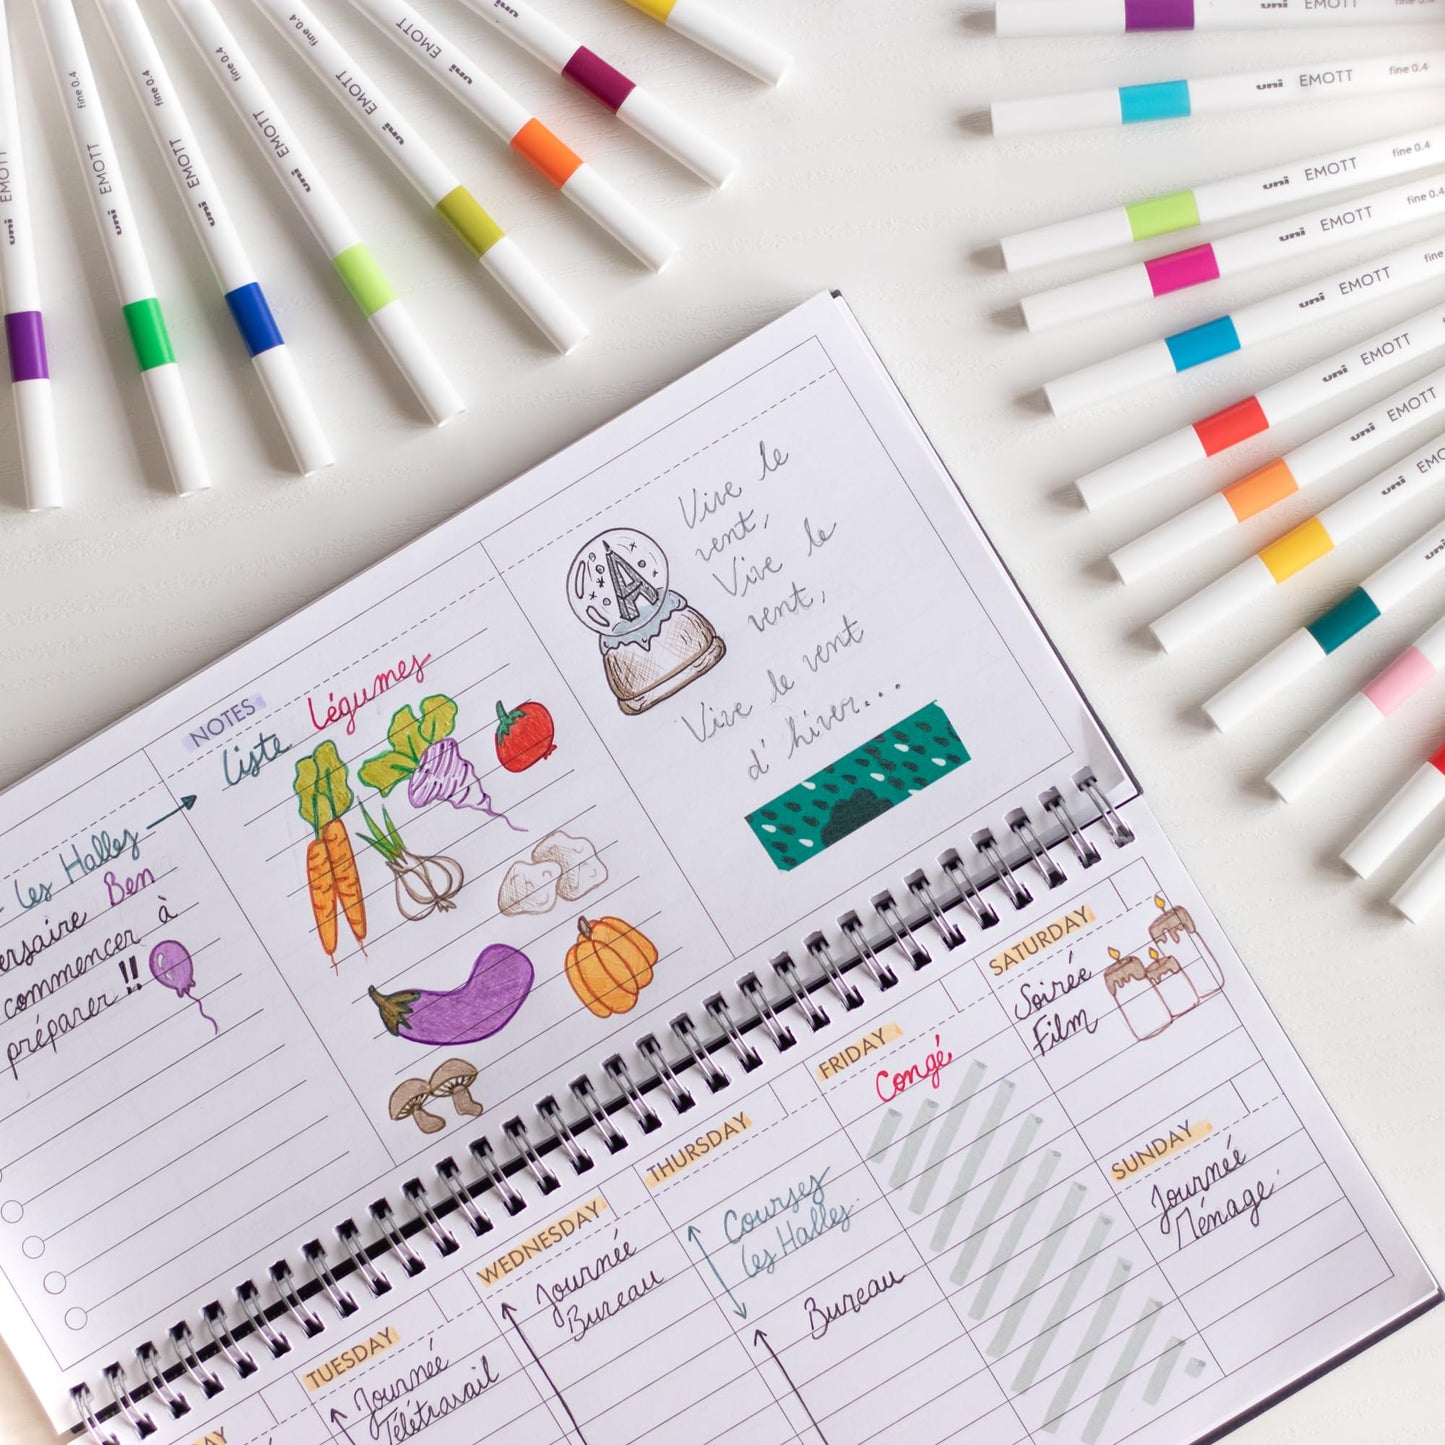 uni EMOTT
uni EMOTT fine 0.4
uni EMOTT fine 0.4
uni EMOTT fine 0.4
uni EMOTT fine 0.4
uni EMOTT
uni
uni EMOTT
uni EMOTT fine 0.4
uni EMOTT fine 0.4
uni EMOTT fine 0.4
uni EMOTT fine
uni EMOTT
uni EMOTT
uni
uni
les Halles
Ben
commencer à
préparer !!
NOTES
Liste Légumes
Vive le
vent,
Vive le
vent,
Vive le vent
d'hiver...
TUESDAY
Journée
Télétravail
WEDNESDAY
Journée
Bureau
THURSDAY
Courses
les Halles
Bureau
FRIDAY
Congé
SATURDAY
Soirée
Film
SUNDAY
Journée
Ménage